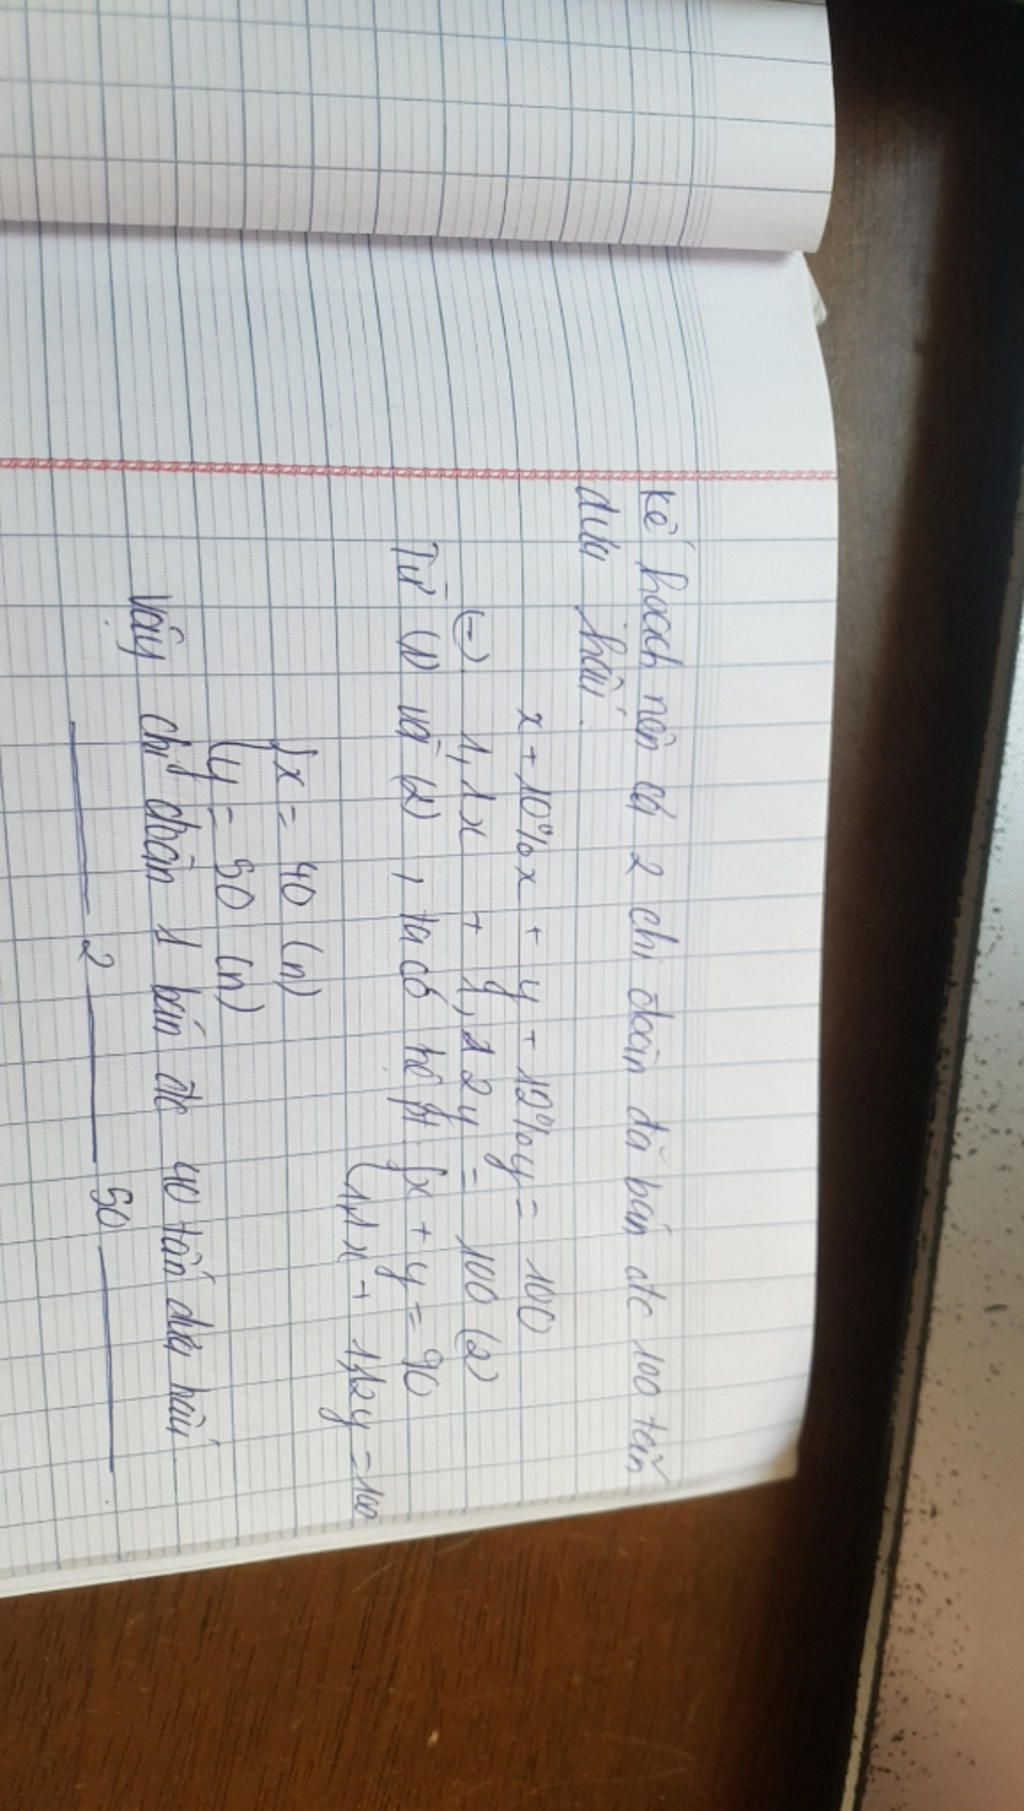 kế hoạch nên cả 2 chi đoàn đã bán đtc 100 tấn
dưa hấu.
x + 10%x + y + 12%y = 100
(=) 1,1x + 1,12y = 100 (2)
Từ (1) và (2), ta có hệ pt { x + y = 90
1,1x + 1,12y = 100
{ x = 40 (n)
y = 50 (n)
Vậy chi đoàn 1 bán đtc 40 tấn dưa hấu
2 50